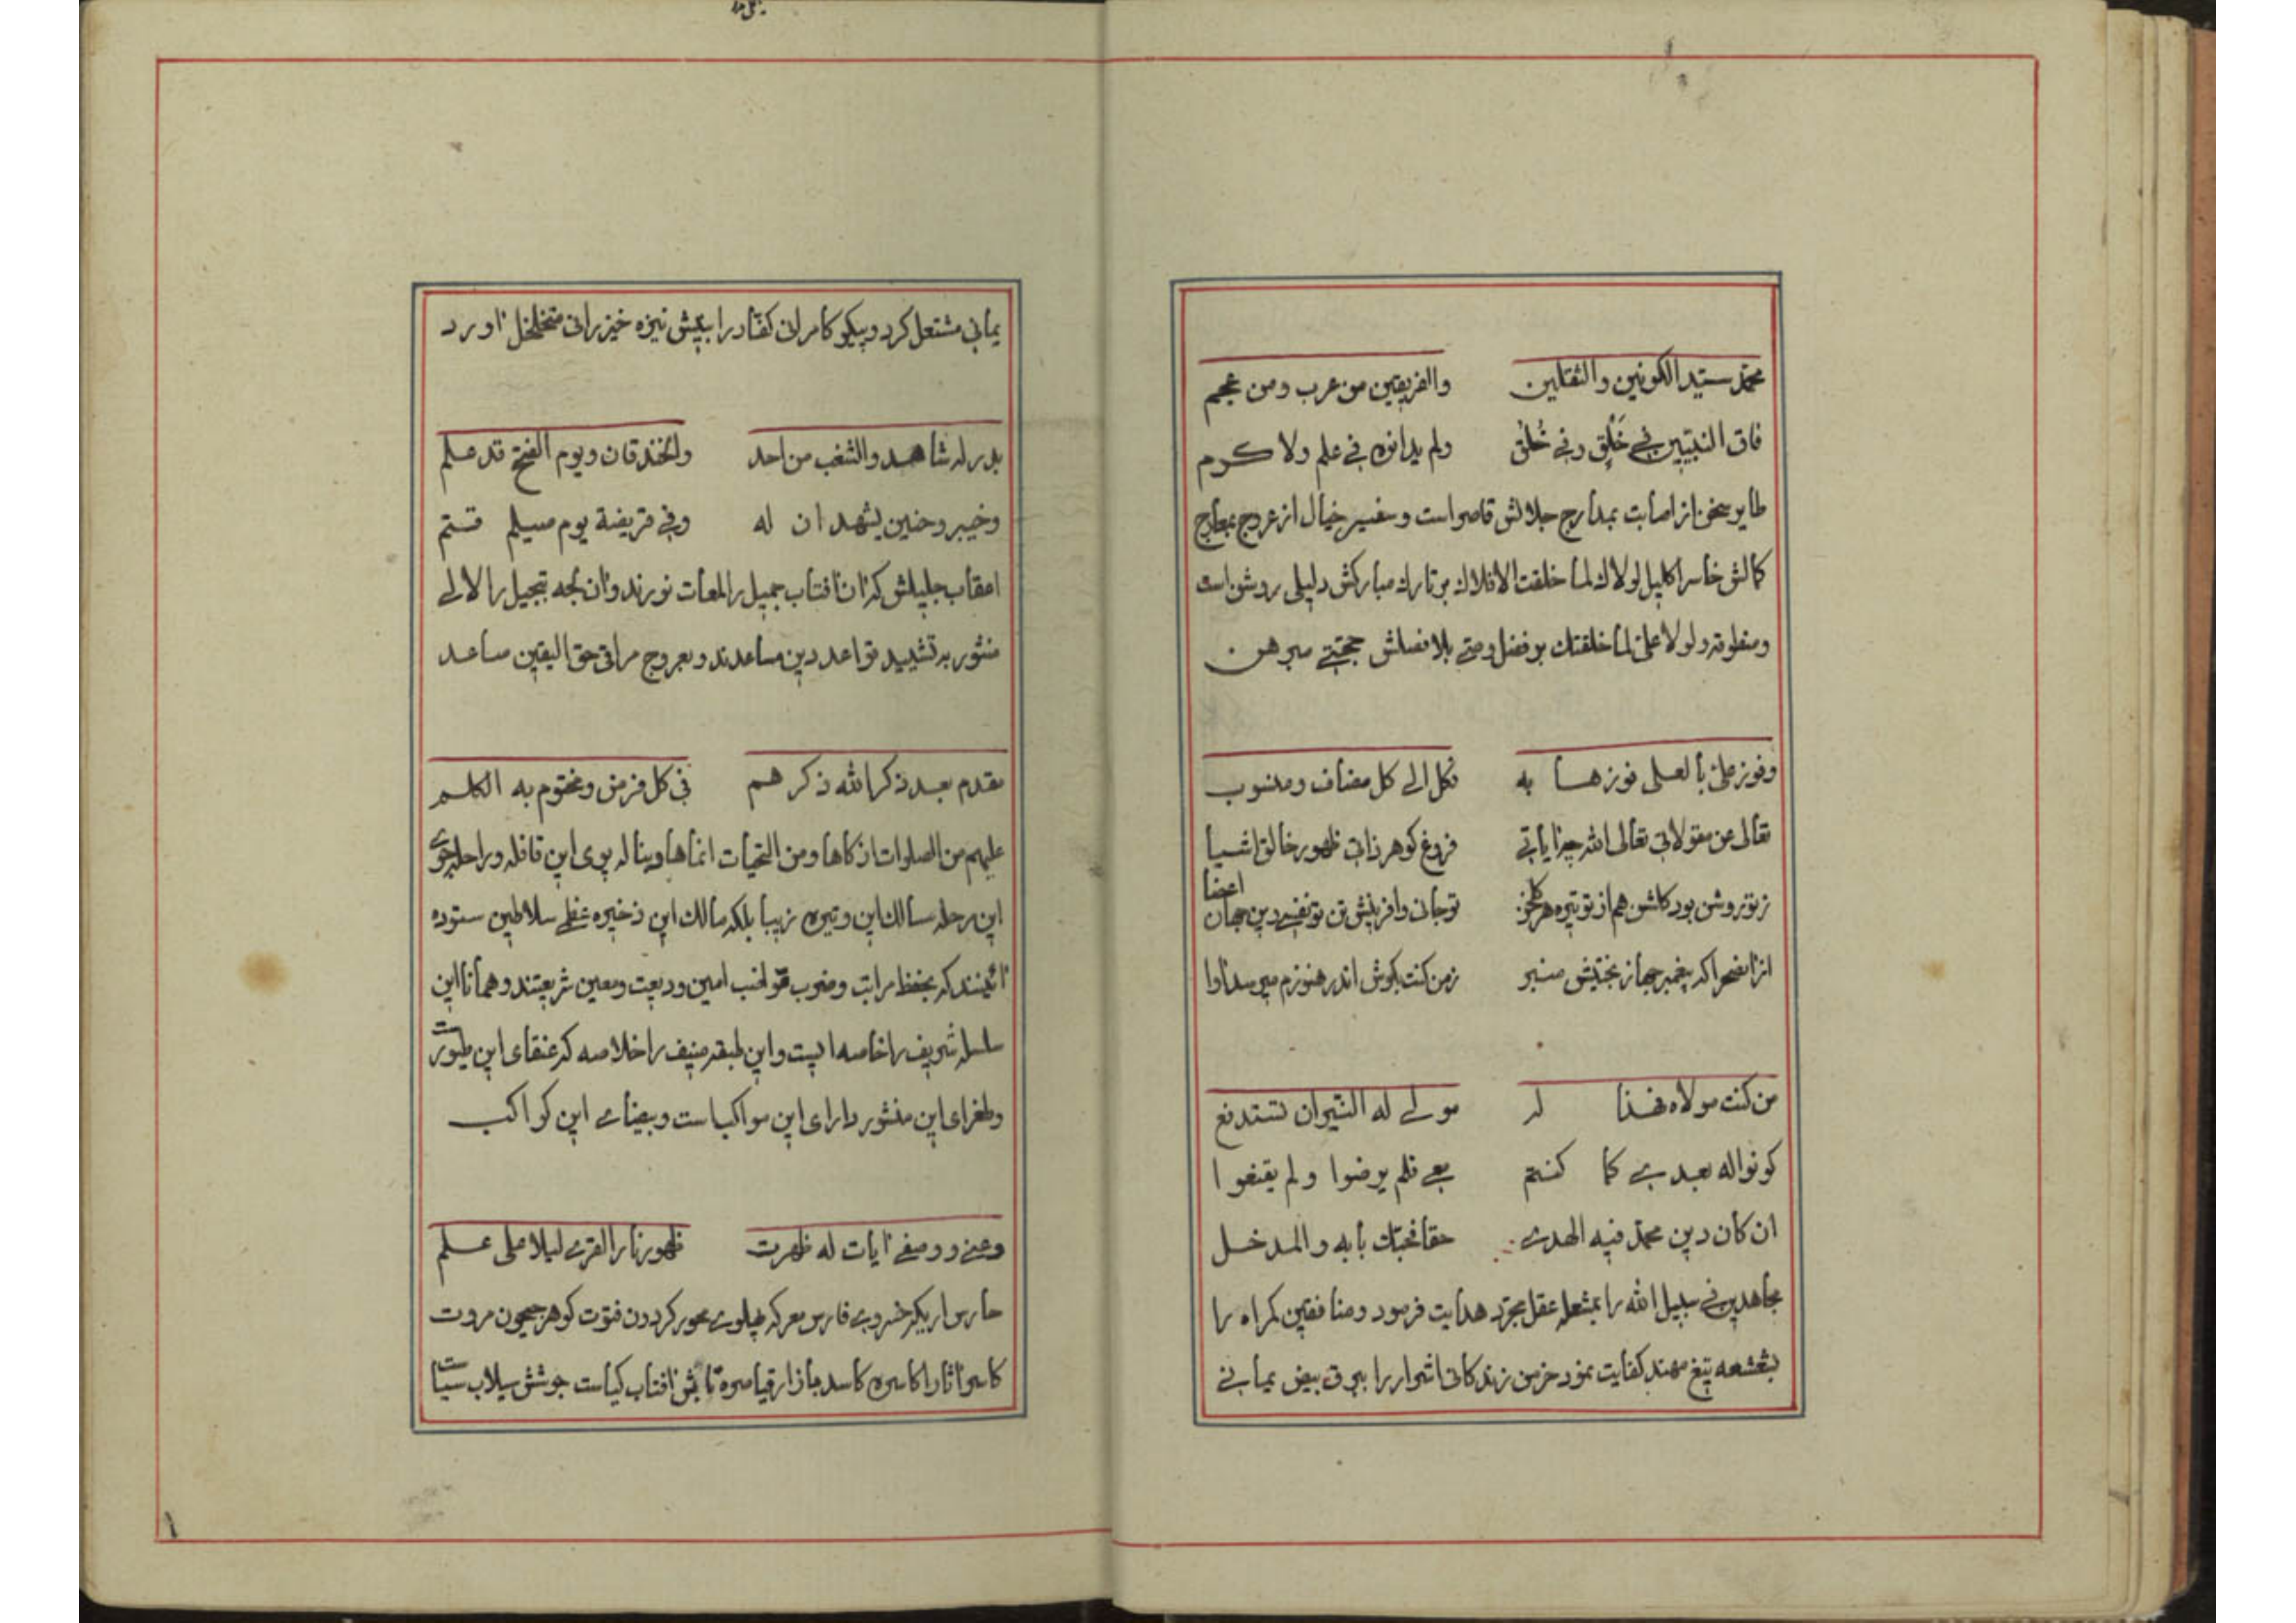 محمد سید الکونین والثقلین والفریقین من عرب ومن عجم
فاق النبیین فی خَلق وفی خُلق ولم یدانوه فی علم ولا کرم
طایر سخن از اصابت بمدارج جلالش قاصر است و سفیر خیال از عروج بمعارج
کمالش خاسر اکلیل لولاک لما خلقت الافلاک بر تارک مبارکش دلیلی روشن است
ومنطوقه ولولا علی لما خلقتک بر فضل وصی بلا فصلش حجتی مبرهن
وفوز علی بالعلی فوزها به فکل الی کل مضاف ومنسوب
تعالی عن مقولاتی تعالی الله چز ایاتی فروغ کوهر ذات ظهور خالق اشیا
ز تو روشن بود کاشن هم از تو تیره هر کلخن تو جان وافرینش تن تو نفس و دین جهان اعضا
از انفخرا که پیغمبر جهاز نختیش منبر ز من کنت بکوش اندر هنوزم میرسد اوا
من کنت مولاه فهذا له مولی له النیران تستدفع
کونوا له بعدی کما کنتم بی فلم یرضوا ولم یقنعوا
ان کان دین محمد فیه الهدی حقا فحبک بابه والمدخل
مجاهدین فی سبیل الله را بمشعله عقل مجرد هدایت فرمود ومنافقین کمراه را
بشعشعه تیغ مهند کفایت نمود خرمن زندکانی اشرار را ببرق بیض یمانی
یمانی مشتعل کرد و پیکر کامرانی کفار را بپیش نیزه خیزرانی متخلخل اورد
بدر له شاهد والشعب من احد والخندقان ویوم الفتح قد علم
وخیبر وحنین یشهدان له وفی قریضة یوم صیلم قتم
اعقاب جلیلش که ان افتاب جمیل را لمعات نورند وان لجه تبجیل را لالی
منثور بر تشیید قواعد دین مساعدند و بعروج مراقی حق الیقین صاعد
مقدم بعد ذکر الله ذکرهم فی کل فرض ومختوم به الکلم
علیهم من الصلوات ازکاها ومن التحیات انماها وبناله پوی این قافله و راحله جوی
این مرحله سالک این وتیره زیبا بلکه مالک این ذخیره عظمی سلاطین ستوده
ائینند که بحفظ مراتب وضرب قواضب امین ودیعت ومعین شریعتند و همانا این
سلسله شریف را خاصه ایست و این طبقه منیف را خلاصه که عنقای این طیور است
وطغرای این منشور دارای این مواکب است و بیضای این کواکب
وعنی و وصفی ایات له ظهرت ظهور نار القری لیلا علی علم
حارس اریکه خسروی فارس معرکه پهلوی محور کردون فتوت کوهر جیحون مروت
کاسر اثار اکاسره کاسد بازار قیاصره تابش افتاب کیاست جوشش سیلاب سیاست